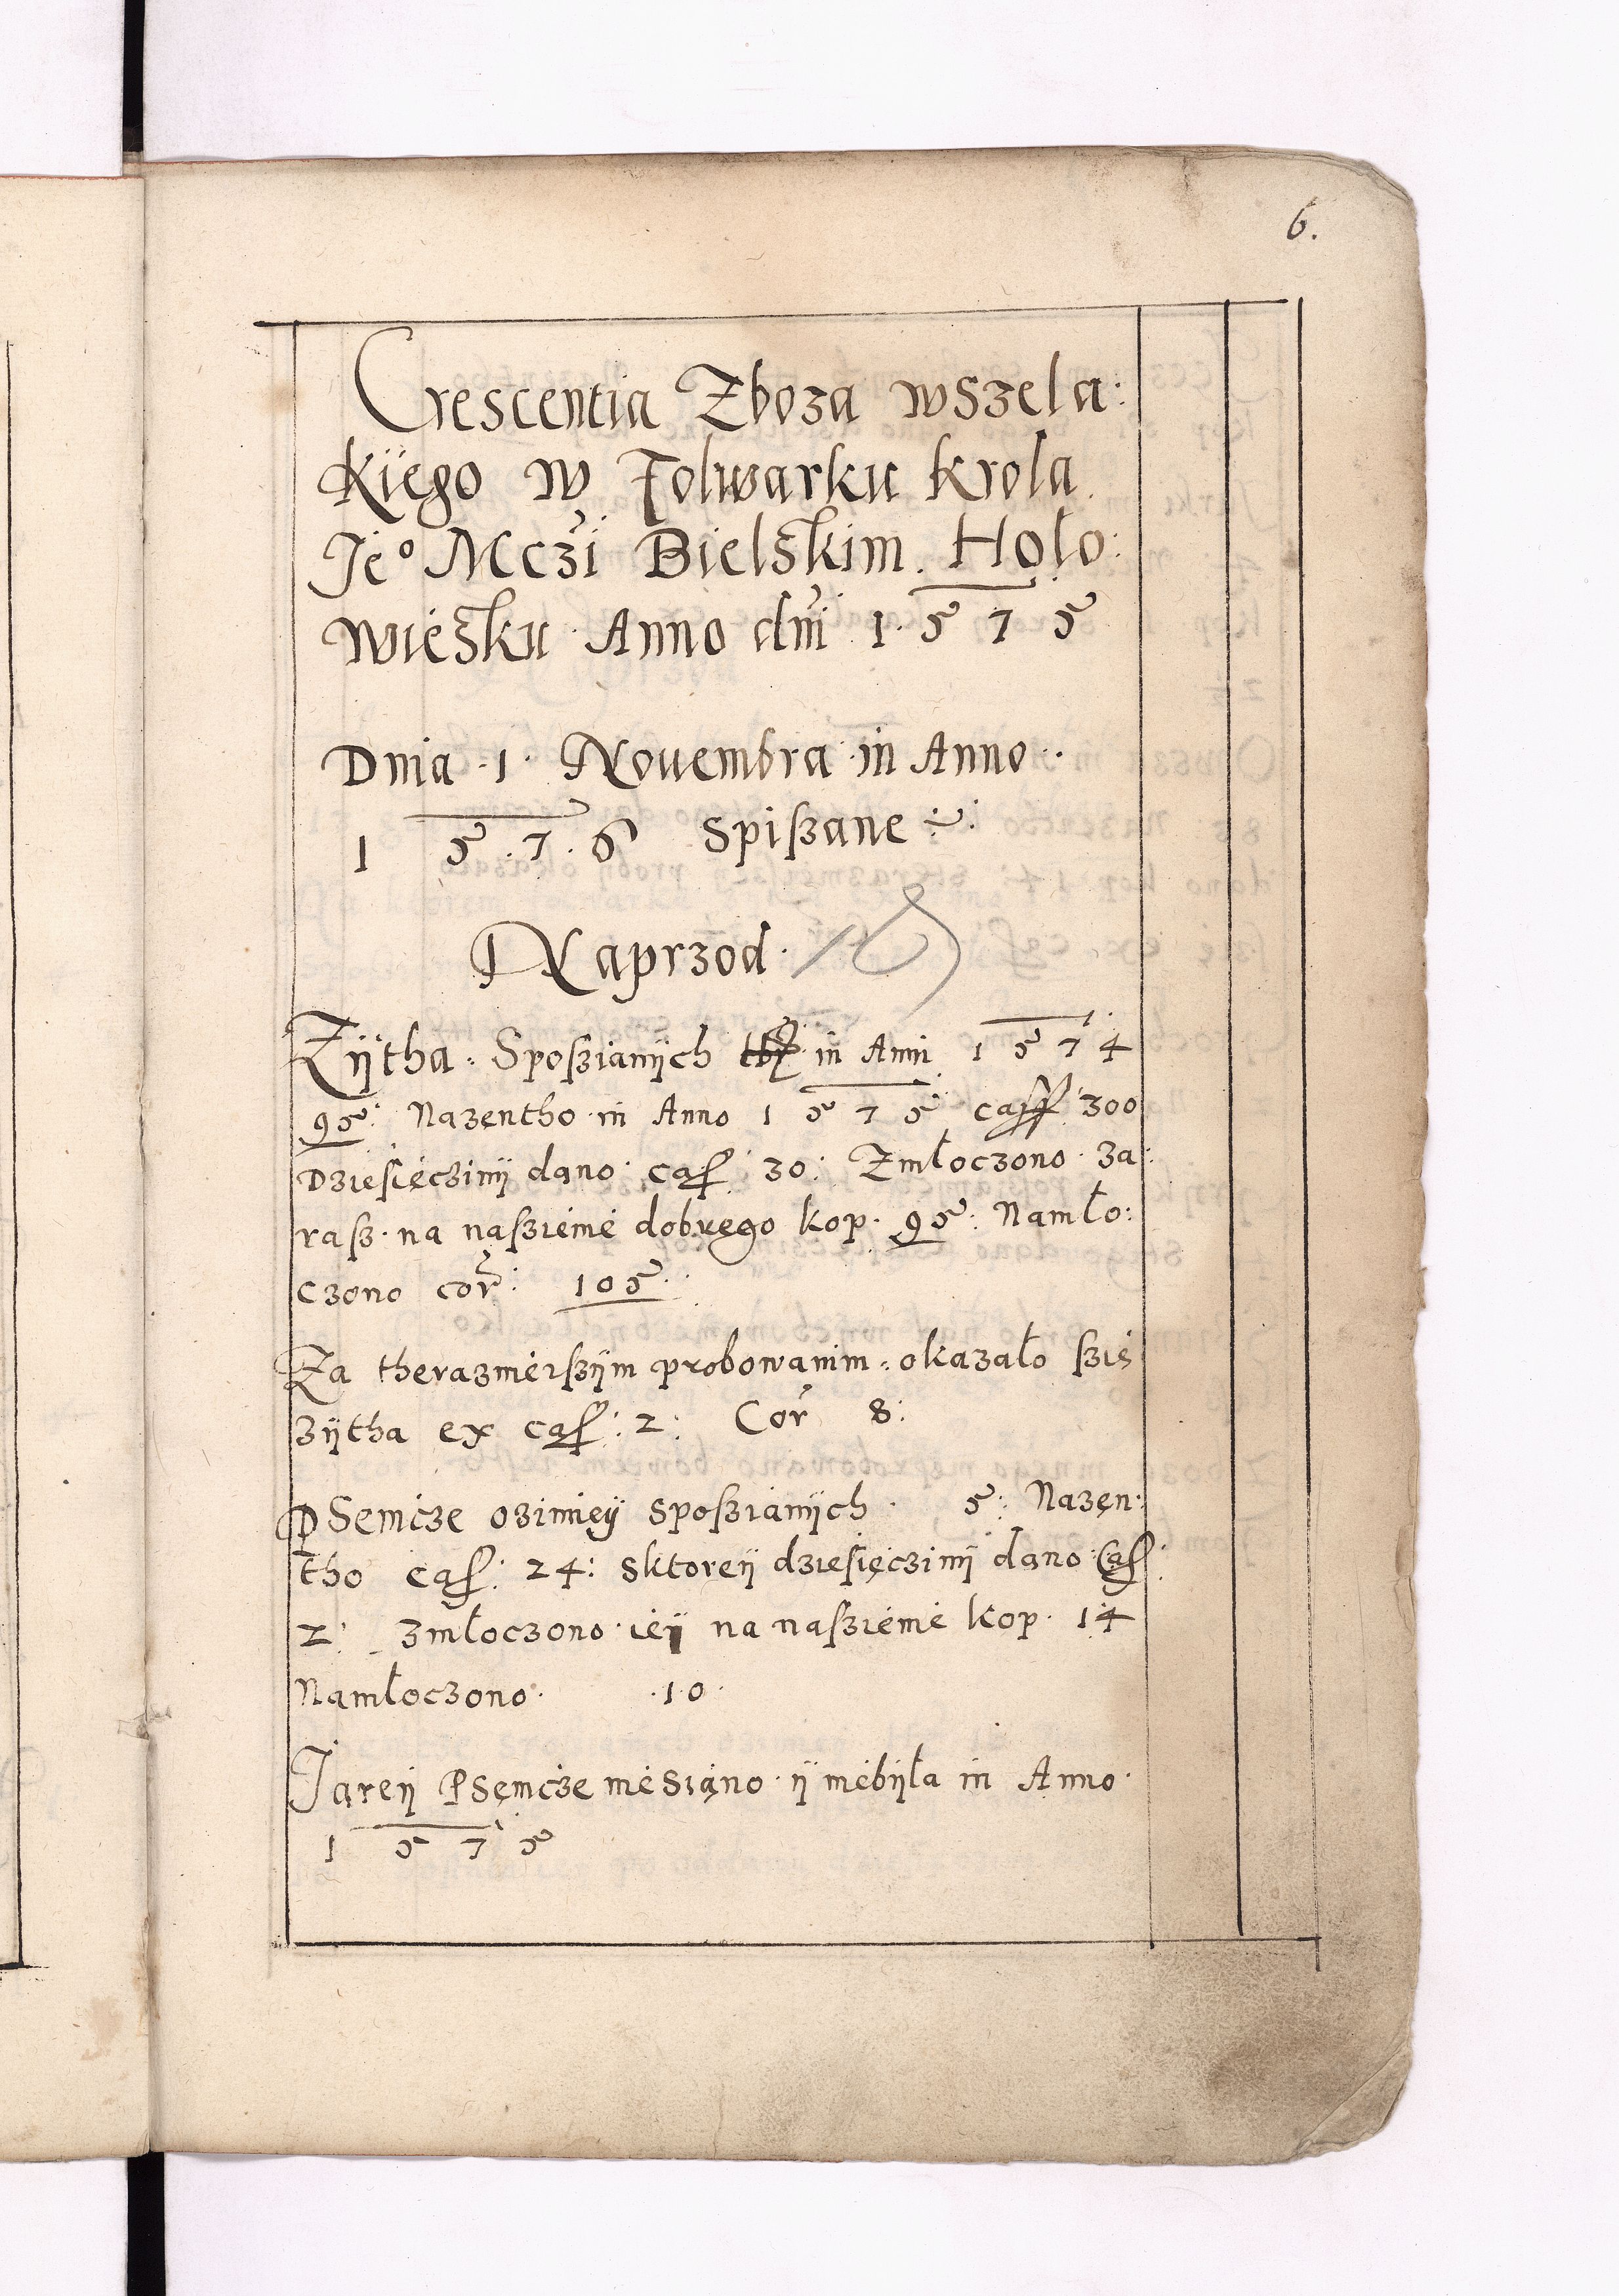 6.
Crescentia Zboza wszela:
kÿego w Folwarku Krola
Je° Mczi Bielskim. Holo:
wiesku Anno dni 1575
Dnia 1 Nouembra in Anno
1576 Spiszane
Naprzod
Zÿtha Sposzianÿch in Anni 1574
95: Nazentho in Anno 1575 casś 300
Dziesięczinÿ dano cas. 30: Zmłoczono za:
rasz na naszieme dobrego kop. 95: Namło:
czono cor: 105
Za therazmeiszÿm probowanim okazało szię
zÿtha ex cas: 2: Cor 8:
PSemcze ozimieÿ sposzianÿch 5: Nazęn:
tho cas: 24: sktoreÿ dziesięczinÿ dano Cas
2: zmłoczono ieÿ na naszieme kop. 14
Namłoczono 10
Jareÿ PSęmcze mesiąno ÿ mebÿła in Anno
1575